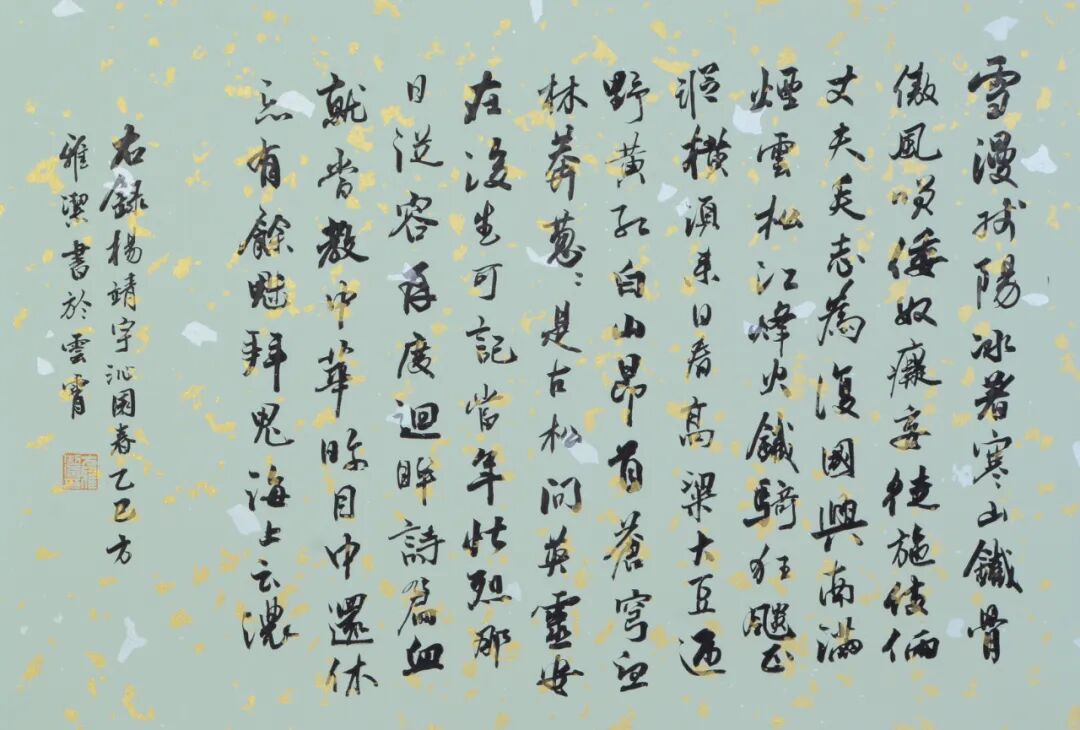 雪漫残阳冰著寒山鐵骨
傲風嘆倭奴癡妄徒施伎倆
丈夫矢志為復國興南滿
煙雲松江烽火鐵騎狂飈正
縱橫須來日看高粱大豆西
野黃紅白山昂首蒼穹血
林莽蔥〻是古松問英靈安
在後生可記當年壯烈那
日從容再度迴眸詩篇血
就當教中華睁目中還休
忘有餘魁拜鬼海上雲濃
右錄楊靖宇沁園春乙巳方
雅潔書於雲霄